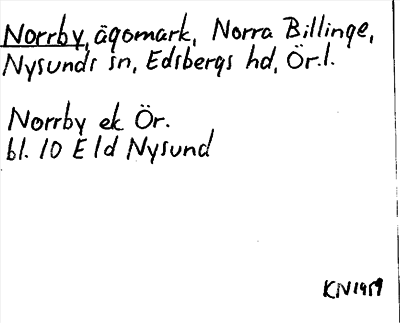 Norrby, ägomark, Norra Billinge,
Nysunds sn, Edsbergs hd, Ör.l.
Norrby ek Ör.
bl. 10 E ld Nysund